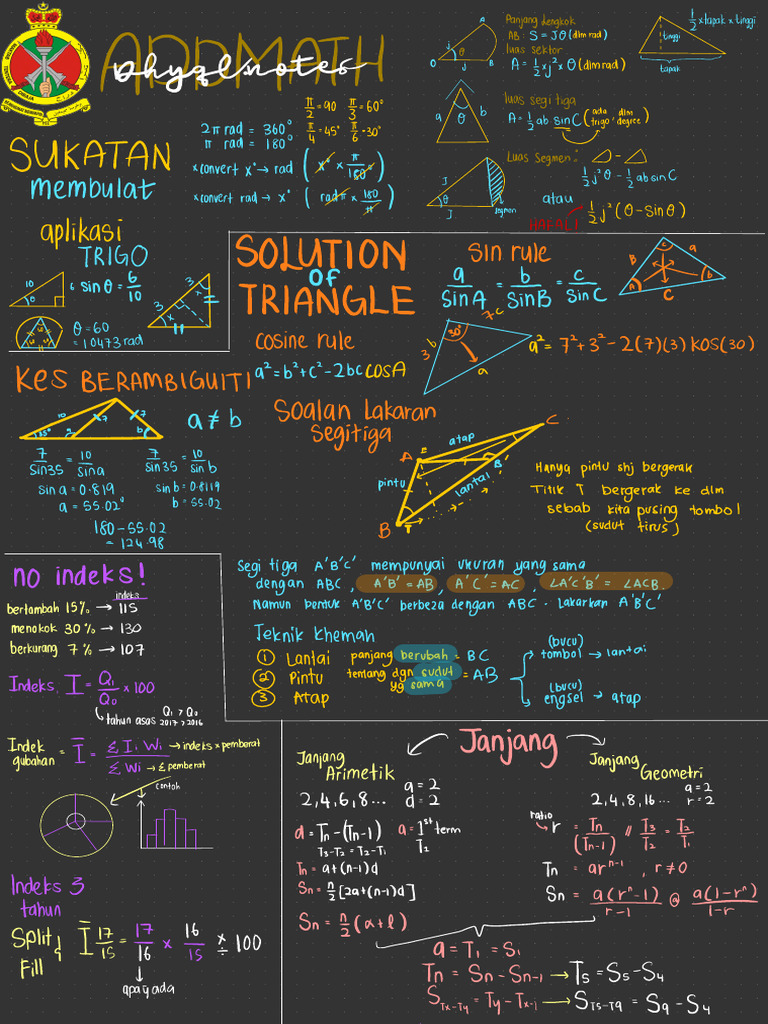 ADDMATH
phyzlnotes
SUKATAN
membulat
2π rad = 360°
π rad = 180°
π/2 = 90
π/3 = 60°
π/4 = 45°
π/6 = 30°
*convert x° → rad (x° × π/180°)
*convert rad → x° (rad π × 180/π)
Panjang lengkok
AB : S = Jθ (dlm rad)
luas sektor
A = 1/2 × j² × θ (dlm rad)
1/2 × tapak × tinggi
tinggi
tapak
luas segi tiga
A = 1/2 ab sin C (ada trigo, dlm degree)
Luas Segmen :
1/2 j² θ - 1/2 ab sin C
atau
HAFAL!
1/2 j² (θ - Sin θ)
segmen
aplikasi
TRIGO
sin θ = 6/10
θ = 60
= 1.0473 rad
SOLUTION
OF
TRIANGLE
Sin rule
a/Sin A = b/Sin B = c/Sin C
cosine rule
a² = b² + c² - 2bc COSA
a² = 7² + 3² - 2(7)(3) KOS(30)
Kes BERAMBIGUITI
a ≠ b
7/sin35 = 10/sin a
sin a = 0.819
a = 55.02°
7/sin 35 = 10/sin b
sin b = 0.8119
b = 55.02
180 - 55.02
= 124.98
Soalan Lakaran
Segitiga
atap
pintu
lantai
Hanya pintu shj bergerak
Titik T bergerak ke dlm
sebab kita pusing tombol
(sudut tirus)
Segi tiga A'B'C' mempunyai ukuran yang sama
dengan ABC, A'B' = AB, A'C' = AC, ∠A'C'B' = ∠ACB.
Namun bentuk A'B'C' berbeza dengan ABC. Lakarkan A'B'C'
Teknik Khemah
① Lantai panjang berubah = BC
② Pintu tentang dgn sudut yg sama = AB
③ Atap
(bucu)
tombol → lantai
(bucu)
engsel → atap
no indeks!
indeks
bertambah 15% → 115
menokok 30% → 130
berkurang 7% → 107
Indeks, I = Q₁/Q₀ × 100
tahun asas Q₁ > Q₀
2017 > 2016
Indek
gubahan = Ī = Σ I i W i / Σ W i
→ indeks × pemberat
→ Σ pemberat
contoh
Indeks 3
tahun
Split &
Fill
Ī 17/15 = 17/16 × 16/15 ×÷ 100
apa yg ada
Janjang
Janjang
Arimetik
2, 4, 6, 8 ...
a = 2
d = 2
d = Tn - (Tn-1)
T3 - T2 = T2 - T1
a = 1st term
T2
Tn = a + (n-1)d
Sn = n/2 [2a + (n-1)d]
Sn = n/2 (a + l)
Janjang
Geometri
2, 4, 8, 16 ...
a = 2
r = 2
ratio
r = Tn/(Tn-1) // T3/T2 = T2/T1
Tn = ar^n-1 , r ≠ 0
Sn = a(r^n - 1)/r-1 @ a(1 - r^n)/1-r
a = T1 = S1
Tn = Sn - Sn-1 → T5 = S5 - S4
S Tx-Ty = Ty - Tx-1 → S T5-T9 = S9 - S4